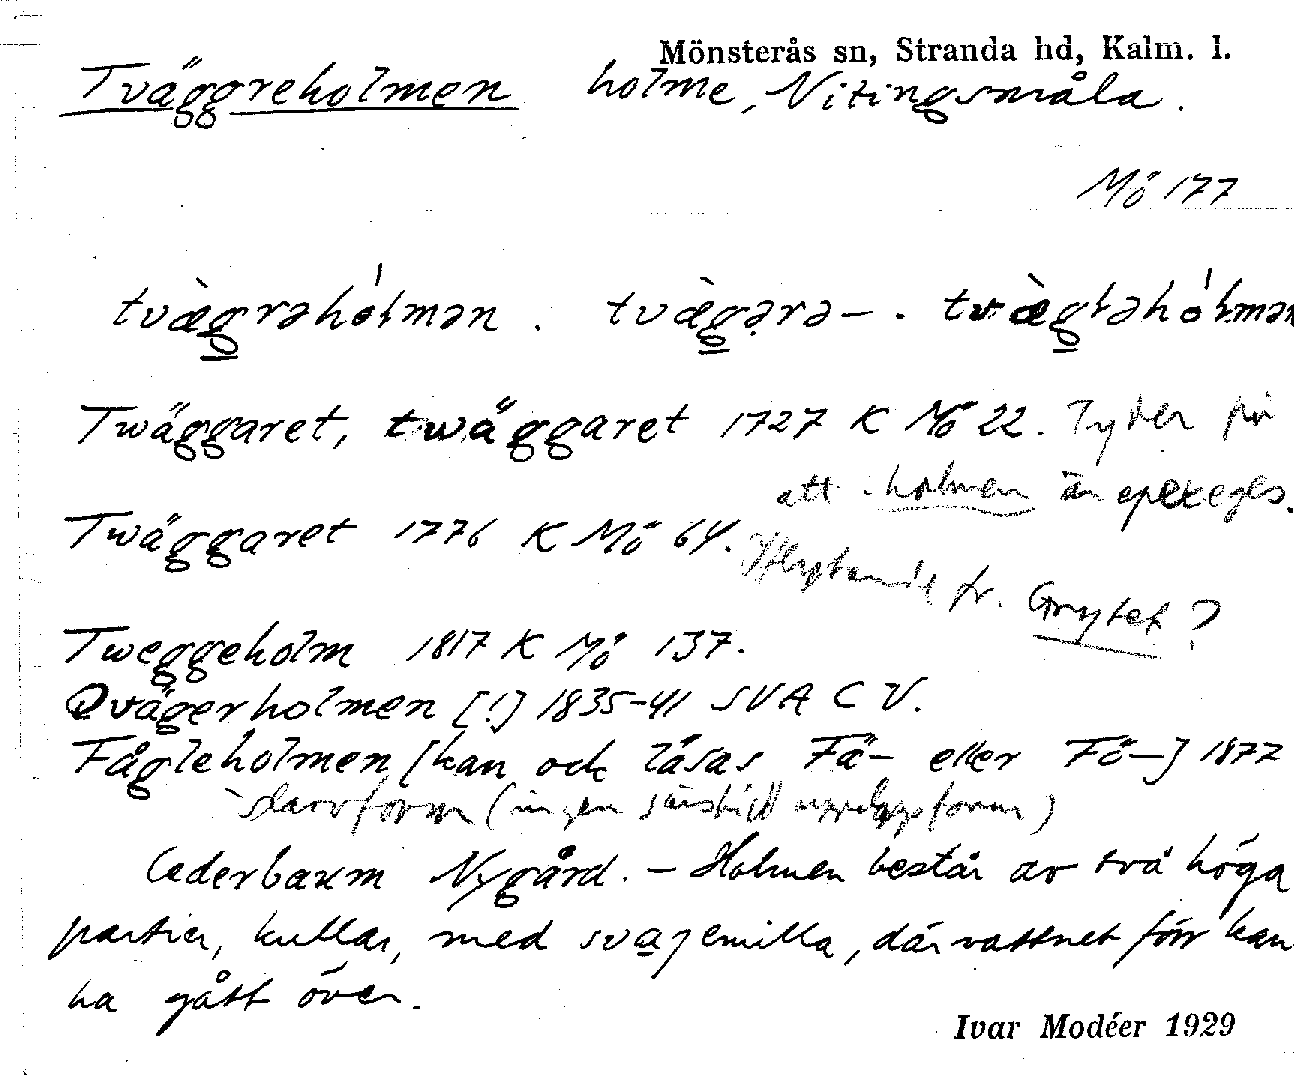 Mönsterås sn, Stranda hd, Kalm. l.
Tväggreholmen holme, Nitingsmåla.
Mö 177
tvæ̀grəhólmən. tvæ̀gərə–. tvæ̀gləhólmən
Twäggaret, twäggaret 1727 K Mö 22. Tyder på
att -holmen är epexeges.
Twäggaret 1776 K Mö 64.
fr. Grytet?
Tweggeholm 1817 K Mö 137.
Qvägerholmen [!] 1835-41 SVA C V.
Fågleholmen [kan och läsas Fä- eller Fö-] 1877
skrivform (ingen särskild
Cederbaum Nygård. – Holmen består av två höga
partier, kullar, med svag emilla, där vattnet förr kan
ha gått över.
Ivar Modéer 1929